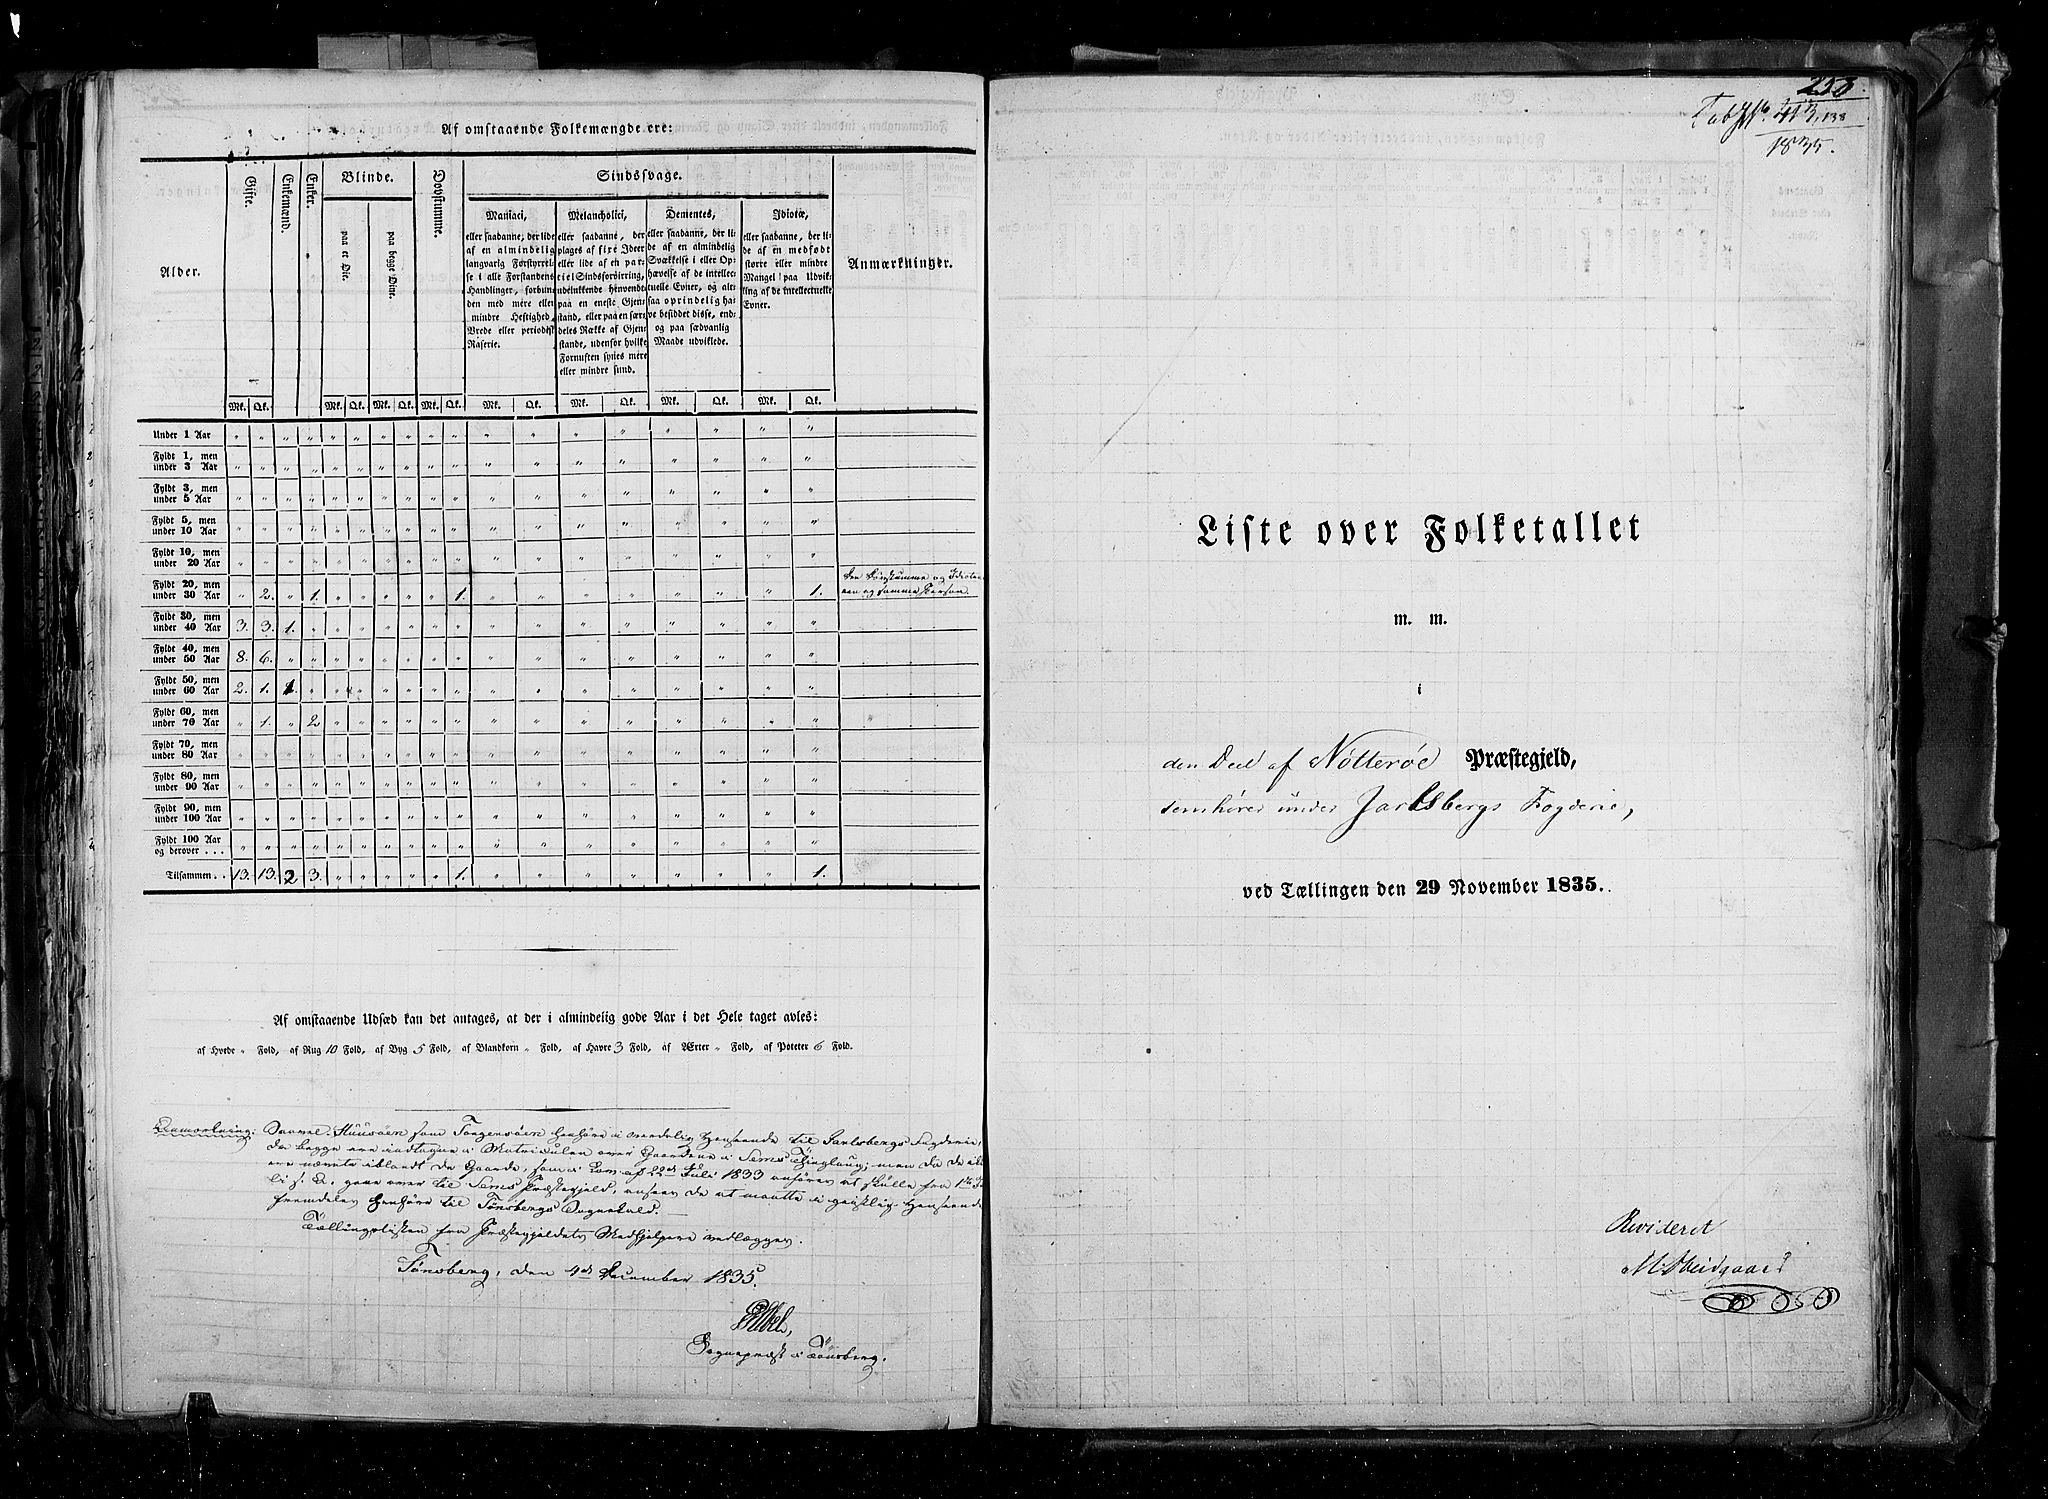 Af omstaaende Folkemængde ere:
Alder.
Gifte.
Enkemænd.
Enker.
Blinde.
paa et Øie.
paa begge Øine.
Døvstumme.
Sindssvage.
Maniaci,
eller saadanne, der lide
af en almindelig
langvarig Forstyrrel-
se i alle Forstandens
Handlinger, forbun-
den med mere eller
mindre Heftighed,
Vrede eller periodisk
Raserie.
Melancholici,
eller saadanne, der
plages af fixe Ideer
eller lide af en par-
tiel Sindsforvirring,
indskrænkende henvendt
paa en eneste Gjen-
stand, eller paa en sær-
deles Række af Gjen-
stande, udenfor hvilke
Fornuften synes mere
eller mindre sund.
Dementes,
eller saadanne, der li-
de af en almindelig
Svækkelse i eller Op-
hævelse af de intellec-
tuelle Evner, og alt-
saa oprindelig ha-
ve besiddet disse, end-
og paa sædvanlig
Maade udviklede.
Idiotæ,
eller saadanne, der li-
de af en medfødt
større eller mindre
Mangel paa Udvik-
ling af de intellectuelle
Evner.
Anmærkninger.
Mk. Qk. Mk. Qk. Mk. Qk. Mk. Qk. Mk. Qk. Mk. Qk. Mk. Qk. Mk. Qk.
Under 1 Aar " " " " " " " " " " " " " " " " " "
Fyldt 1, men
under 3 Aar " " " " " " " " " " " " " " " " " "
Fyldt 3, men
under 5 Aar " " " " " " " " " " " " " " " " " "
Fyldt 5, men
under 10 Aar " " " " " " " " " " " " " " " " " "
Fyldt 10, men
under 20 Aar " " " " " " " " " " " " " " " " " "
Fyldt 20, men
under 30 Aar " 2. " 1. " " " " " 1. " " " " " " " 1.
Den Døvstumme og Idioten
een og samme Person.
Fyldt 30, men
under 40 Aar 3. 3. 1. " " " " " " " " " " " " " " "
Fyldt 40, men
under 50 Aar 8. 6. " " " " " " " " " " " " " " " "
Fyldt 50, men
under 60 Aar 2. 1. 1. " " " " " " " " " " " " " " "
Fyldt 60, men
under 70 Aar " 1. " 2 " " " " " " " " " " " " " "
Fyldt 70, men
under 80 Aar " " " " " " " " " " " " " " " " " "
Fyldt 80, men
under 90 Aar " " " " " " " " " " " " " " " " " "
Fyldt 90, men
under 100 Aar " " " " " " " " " " " " " " " " " "
Fyldt 100 Aar
og derover . . . " " " " " " " " " " " " " " " " " "
Tilsammen . . 13. 13. 2 3. " " " " " 1. " " " " " " " 1.
Af omstaaende Udsæd kan det antages, at der i almindelig gode Aar i det Hele taget avles:
af Hvede " Fold, af Rug 10 Fold, af Byg 5 Fold, af Blandkorn " Fold, af Havre 3 Fold, af Ærter " Fold, af Poteter 6 Fold.
Anmærkning: Saavel Huusøen som Torgersøen henhøre i verdslig Henseende til Jarlsbergs Fogderie,
da begge ere indtagne i Matriculen over Gaardene i Sems Thinglaug; men da de ikke
ere nævnte iblandt de Gaarde, som i Lov af 22de Juli 1833 anføres at skulle fra 1ste Ju-
li s. A. gaae over til Sems Præstegjeld, ansees de at maatte i geistlig Henseende
fremdeles henhøre til Tønsbergs Sognekald.
Tællingslisten fra Præstegjeldets Medhjelpere vedlægges.
Tønsberg, den 4de December 1835.
Sognepræst i Tønsberg.
253.
413, 138
1835.
Liste over Folketallet
m. m.
i
den Deel af Nötteröe Præstegjeld,
som hører under Jarlsbergs Fogderie,
ved Tællingen den 29 November 1835.
Revideret
M. Heidgaard